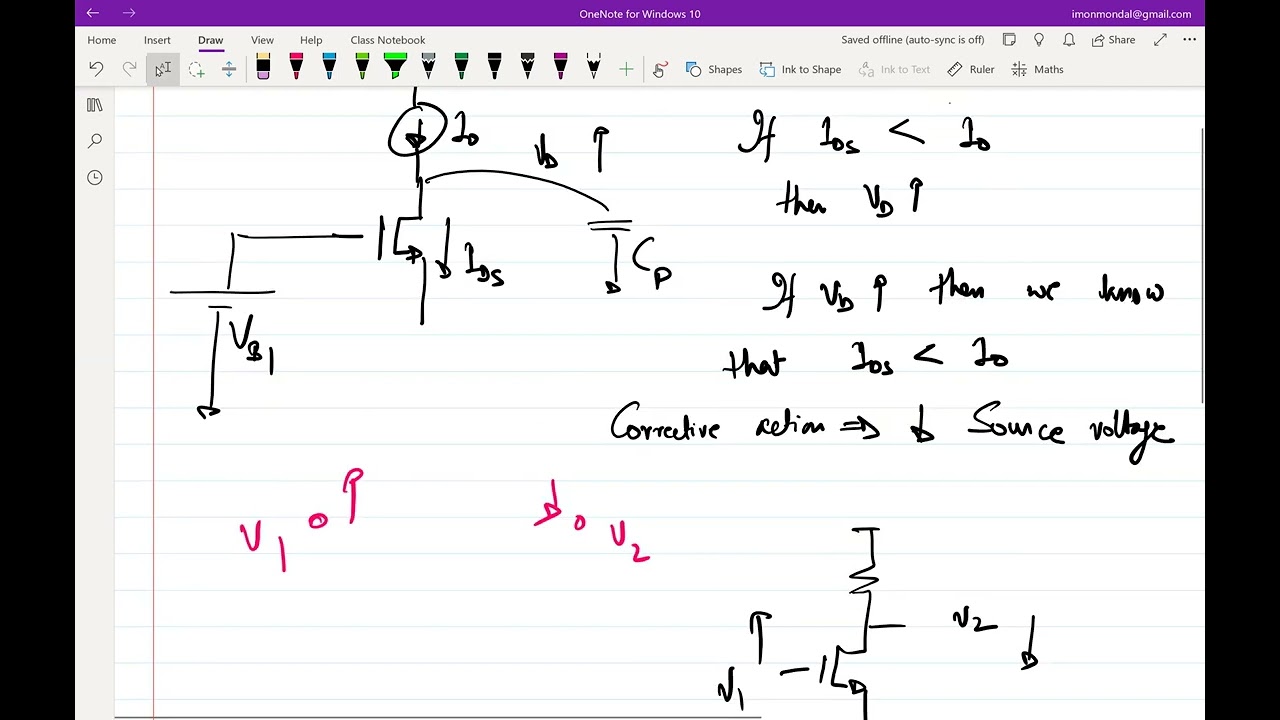 OneNote for Windows 10
imonmondal@gmail.com
Home Insert Draw View Help Class Notebook
Saved offline (auto-sync is off) Share
Shapes Ink to Shape Ink to Text Ruler Maths
I0
VD ↑
IDS
CP
VB1
If IDS < I0
then VD ↑
If VD ↑ then we know
that IDS < I0
Corrective action ⇒ ↓ Source voltage
V1 ↑
↓ V2
V2 ↓
↑
V1